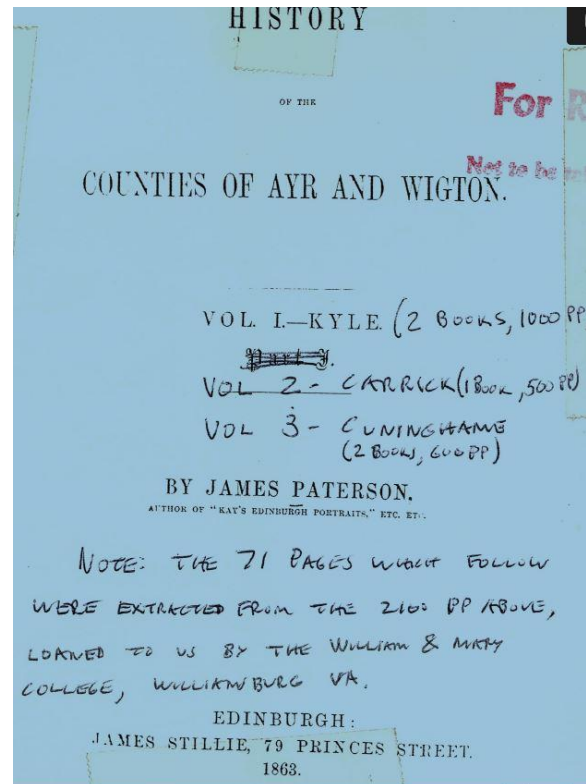 HISTORY
OF THE
For
Not to be
COUNTIES OF AYR AND WIGTON.
VOL. I.—KYLE. (2 BOOKS, 1000 PP
VOL 2 - CARRICK (1 BOOK, 500 PP)
VOL 3 - CUNINGHAME
(2 BOOKS, 600 PP)
BY JAMES PATERSON,
AUTHOR OF "KAY'S EDINBURGH PORTRAITS," ETC. ETC.
NOTE: THE 71 PAGES WHICH FOLLOW
WERE EXTRACTED FROM THE 2100 PP ABOVE,
LOANED TO US BY THE WILLIAM & MARY
COLLEGE, WILLIAMBURG VA.
EDINBURGH:
JAMES STILLIE, 79 PRINCES STREET.
1863.